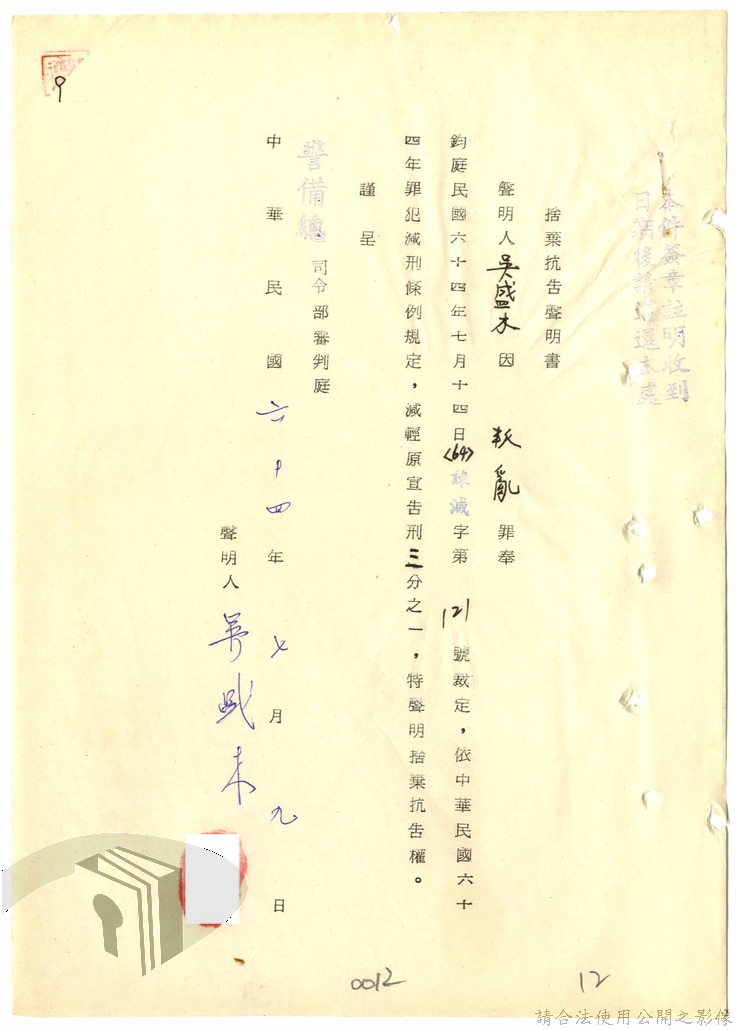 本件簽章註明收到
日期後請退還本處
捨棄抗告聲明書
聲明人吳盛木因 叛亂 罪奉
鈞庭民國六十四年七月十四日(64)諫減字第 121 號裁定，依中華民國六十
四年罪犯減刑條例規定，減輕原宣告刑三分之一，特聲明捨棄抗告權。
謹呈
警備總司令部審判庭
中華民國六十四年七月 九日
聲明人 吳盛木
9
0012
12
請合法使用公開之影像